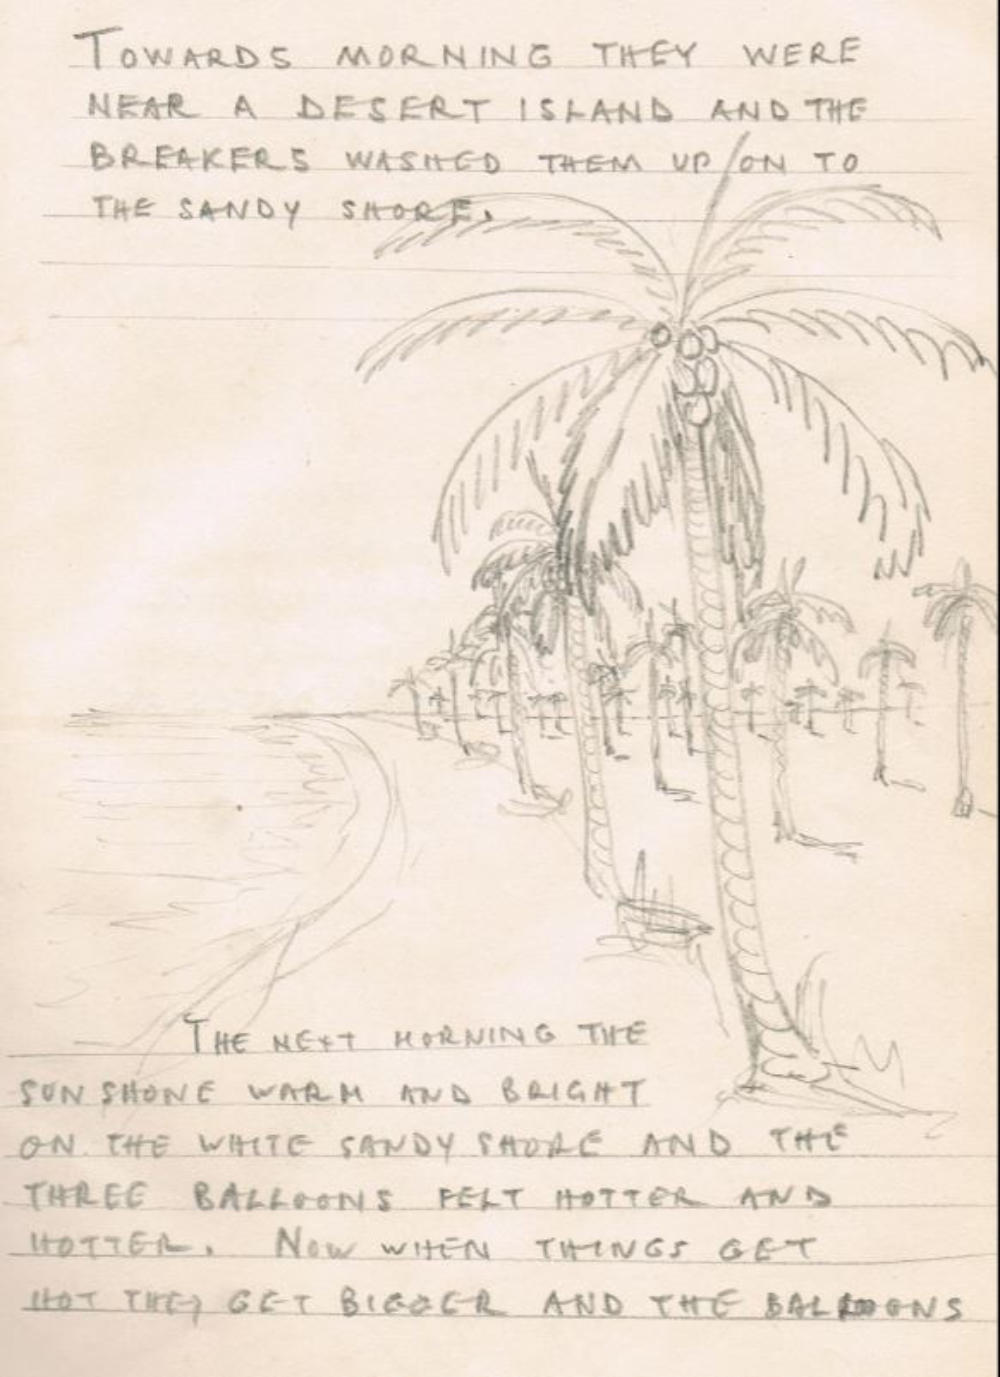 TOWARDS MORNING THEY WERE
NEAR A DESERT ISLAND AND THE
BREAKERS WASHED THEM UP ON TO
THE SANDY SHORE.
THE NEXT MORNING THE
SUN SHONE WARM AND BRIGHT
ON THE WHITE SANDY SHORE AND THE
THREE BALLOONS FELT HOTTER AND
HOTTER. NOW WHEN THINGS GET
HOT THEY GET BIGGER AND THE BALLOONS